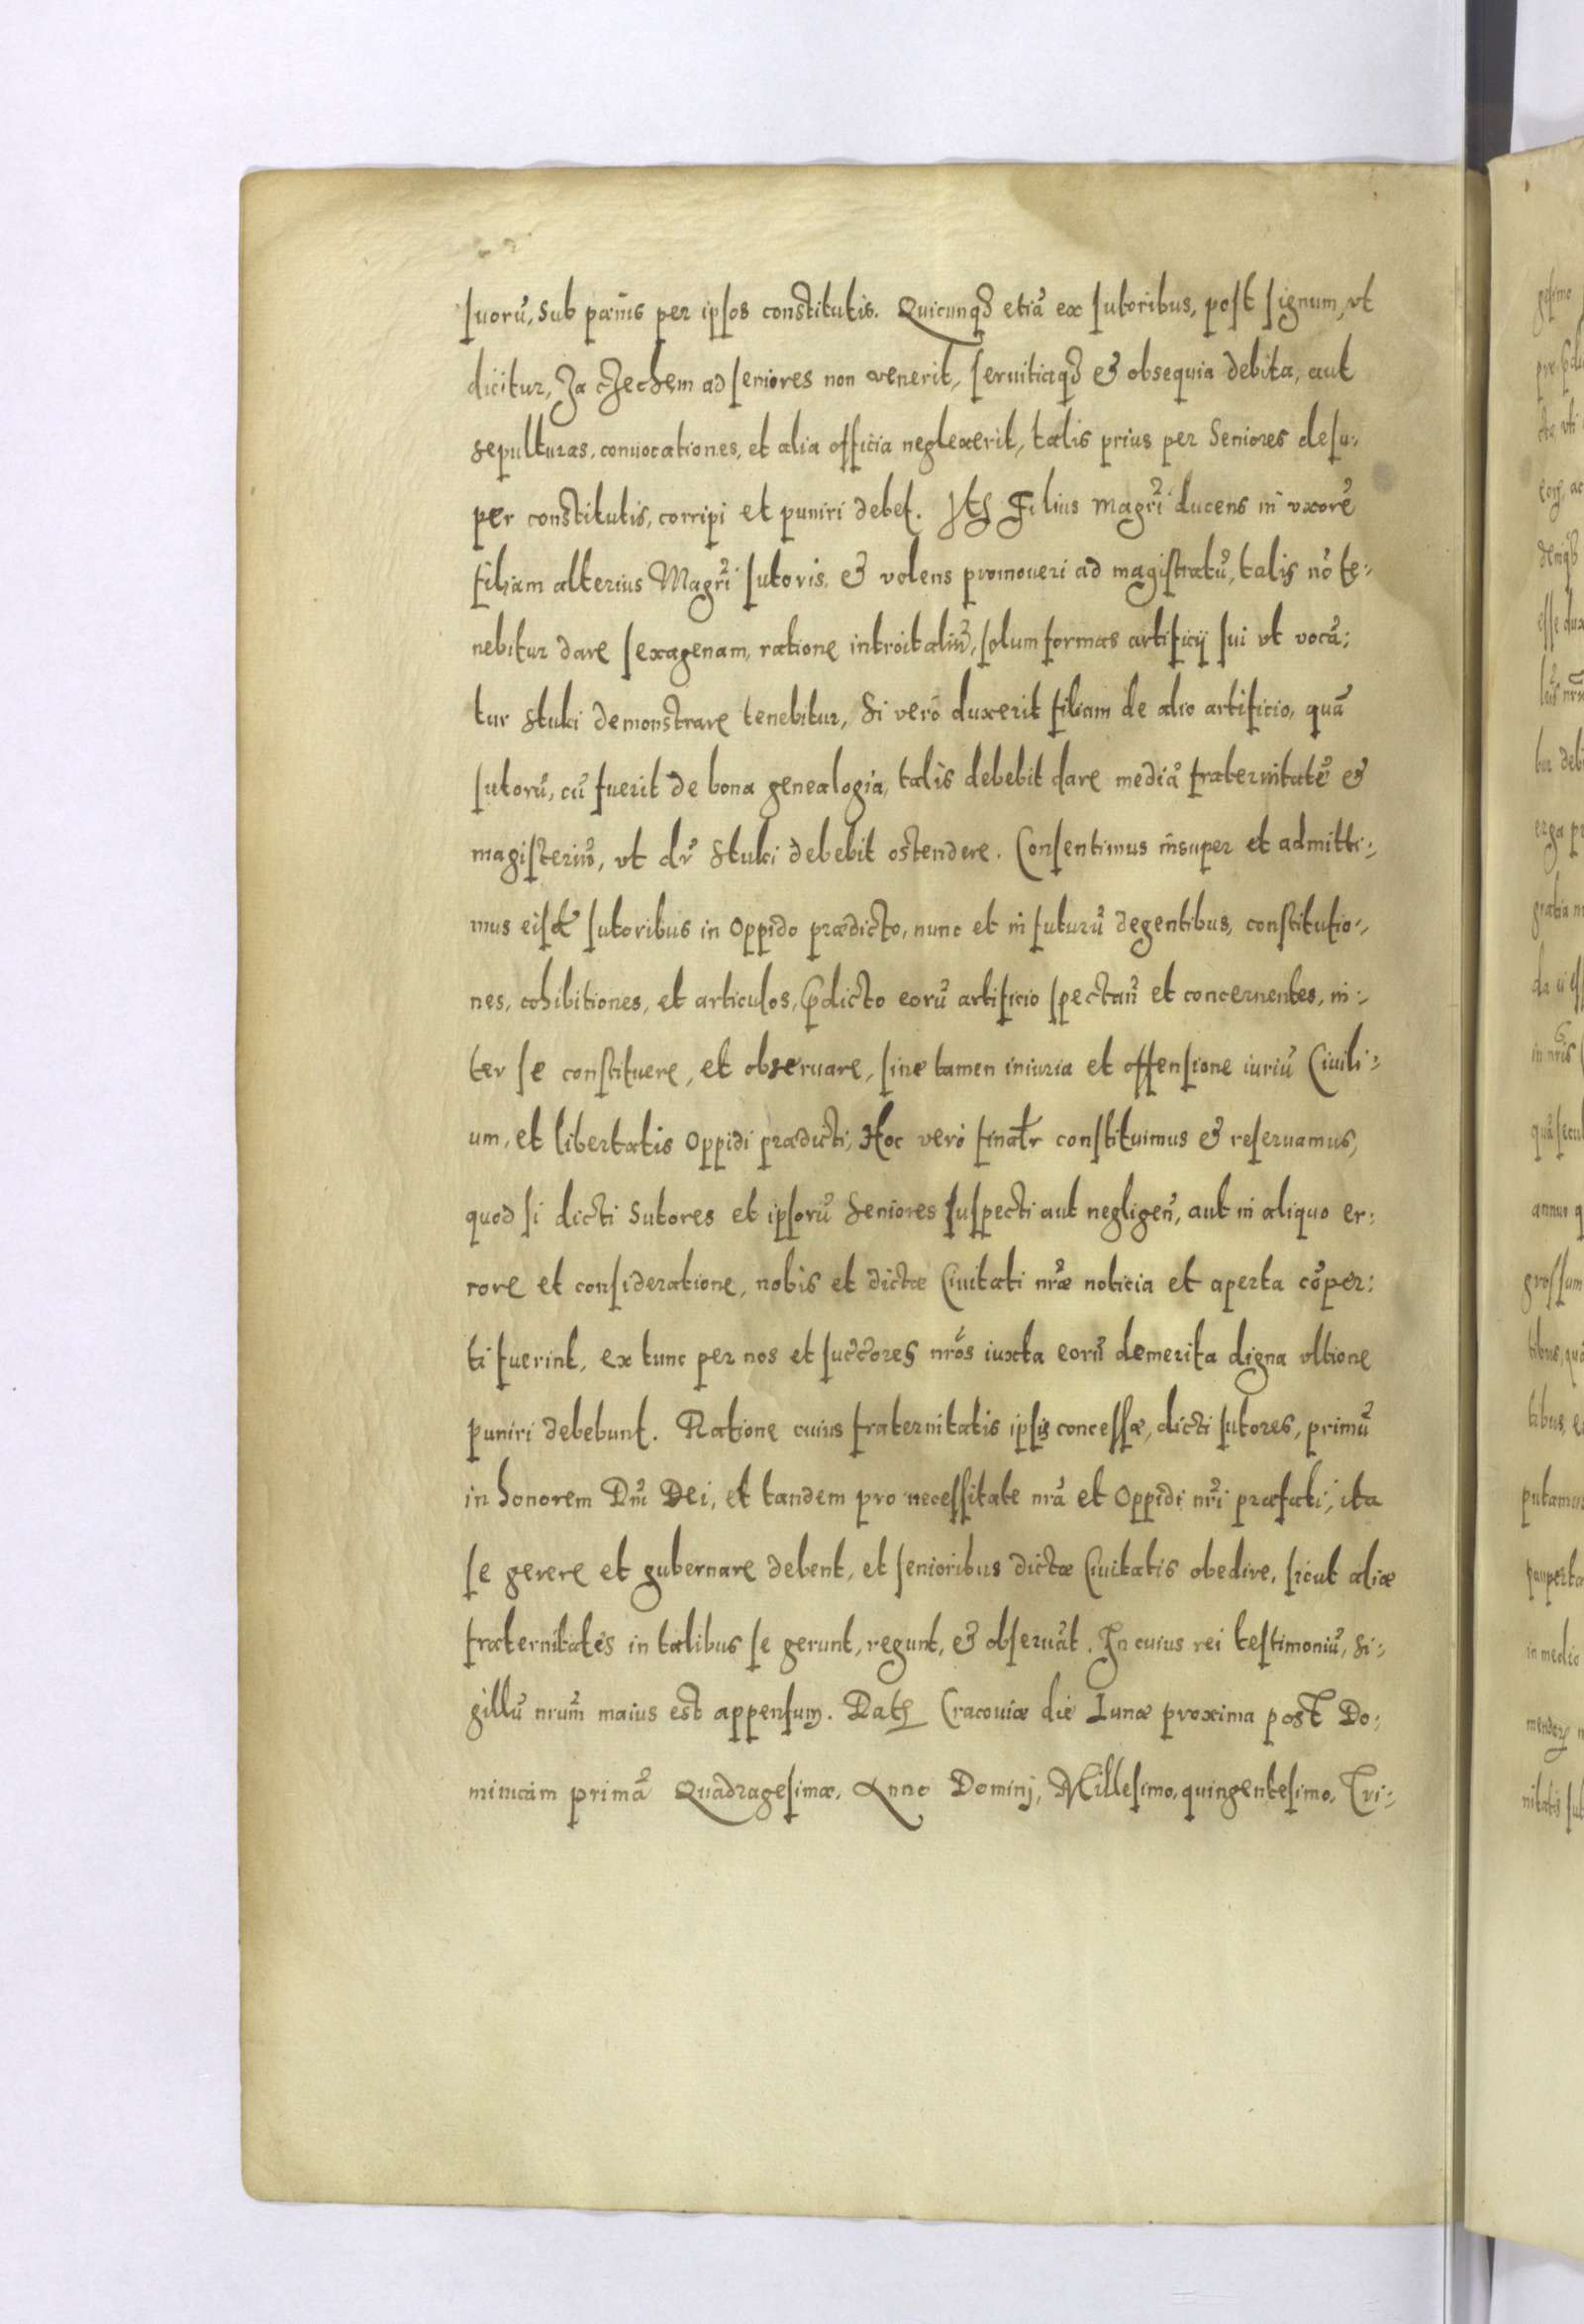 suorũ, sub pœnis per ipsos constitutis. Quicunqȝ etiã ex sutoribus, post signum, vt
dicitur, Za Czechem ad seniores non venerit, seruitiaqȝ & obsequia debita, aut
sepulturas, conuocationes, et alia officia neglexerit, talis prius per Seniores desu-
per constitutis, corripi et puniri debet. Itē Filius Magr̃i ducens in vxorẽ
filiam alterius Magr̃i sutoris, & volens promoueri ad magistratũ, talis nõ te-
nebitur dare sexagenam, ratione introitaliũ, solum formas artificij sui vt vocã-
tur Stuki demonstrare tenebitur, Si verò duxerit filiam de alio artificio, quã
sutorũ, cũ fuerit de bona genealogia, talis debebit dare mediã fraternitatẽ &
magisteriũ, vt dr̃ Stuki debebit ostendere. Consentimus insuper et admitti-
mus eisdẽ sutoribus in Oppido prædicto, nunc et in futurũ degentibus, constitutio-
nes, cohibitiones, et articulos, p̃dicto eorũ artificio spectañ et concernentes, in-
ter se constituere, et obseruare, sine tamen iniuria et offensione iuriũ Ciuili-
um, et libertatis Oppidi prædicti, Hoc verò finalr̃ constituimus & reseruamus,
quod si dicti Sutores et ipsorũ Seniores suspecti aut negligeñ, aut in aliquo er-
rore et consideratione, nobis et dictæ Ciuitati nr̃æ noticia et aperta cõper-
ti fuerint, ex tunc per nos et succ̃ores nr̃os iuxta eorũ demerita digna vltione
puniri debebunt. Ratione cuius fraternitatis ipsis concessæ, dicti sutores, primũ
in honorem Dñi Dei, et tandem pro necessitate nr̃a et Oppidi nr̃i præfati, ita
se gerere et gubernare debent, et senioribus dictæ Ciuitatis obedire, sicut aliæ
fraternitates in talibus se gerunt, regunt, & obseruãt. In cuius rei testimoniũ, Si-
gillũ nr̃um maius est appensum. Datȝ Cracouiæ die Lunæ proxima post Do-
minicam primã Quadragesimæ, Anno Dominj, Millesimo, quingentesimo, Tri-